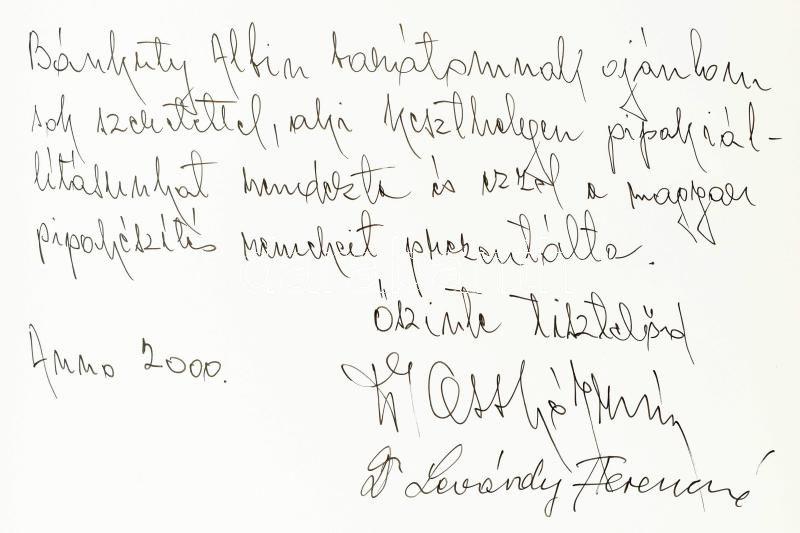 Bánkuty Albin barátomnak ajánlom
sok szeretettel, aki Keszthelyen pipakiál-
lításunkat rendezte és ezzel a magyar
pipakészítés remekeit prezentálta.
Őszinte tisztelőd
Anno 2000.
Dr
Dr Levárdy Ferencné